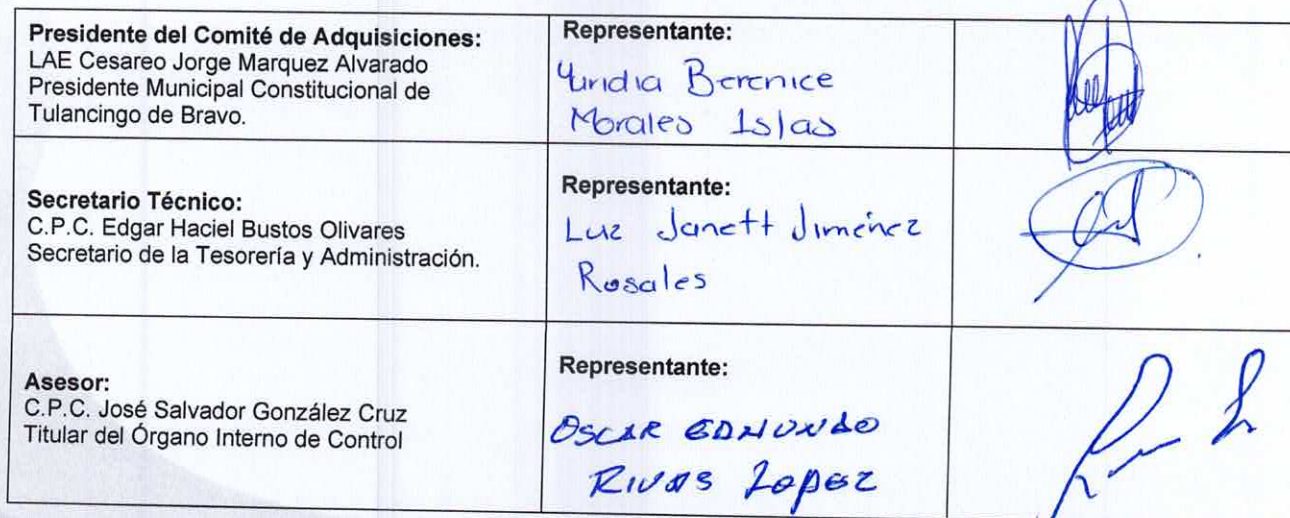 Presidente del Comité de Adquisiciones:
LAE Cesareo Jorge Marquez Alvarado
Presidente Municipal Constitucional de
Tulancingo de Bravo.
Representante:
Yuridia Berenice
Morales Islas
Secretario Técnico:
C.P.C. Edgar Haciel Bustos Olivares
Secretario de la Tesorería y Administración.
Representante:
Luz Janett Jiménez
Rosales
Asesor:
C.P.C. José Salvador González Cruz
Titular del Órgano Interno de Control
Representante:
OSCAR EDMUNDO
RIVAS LOPEZ